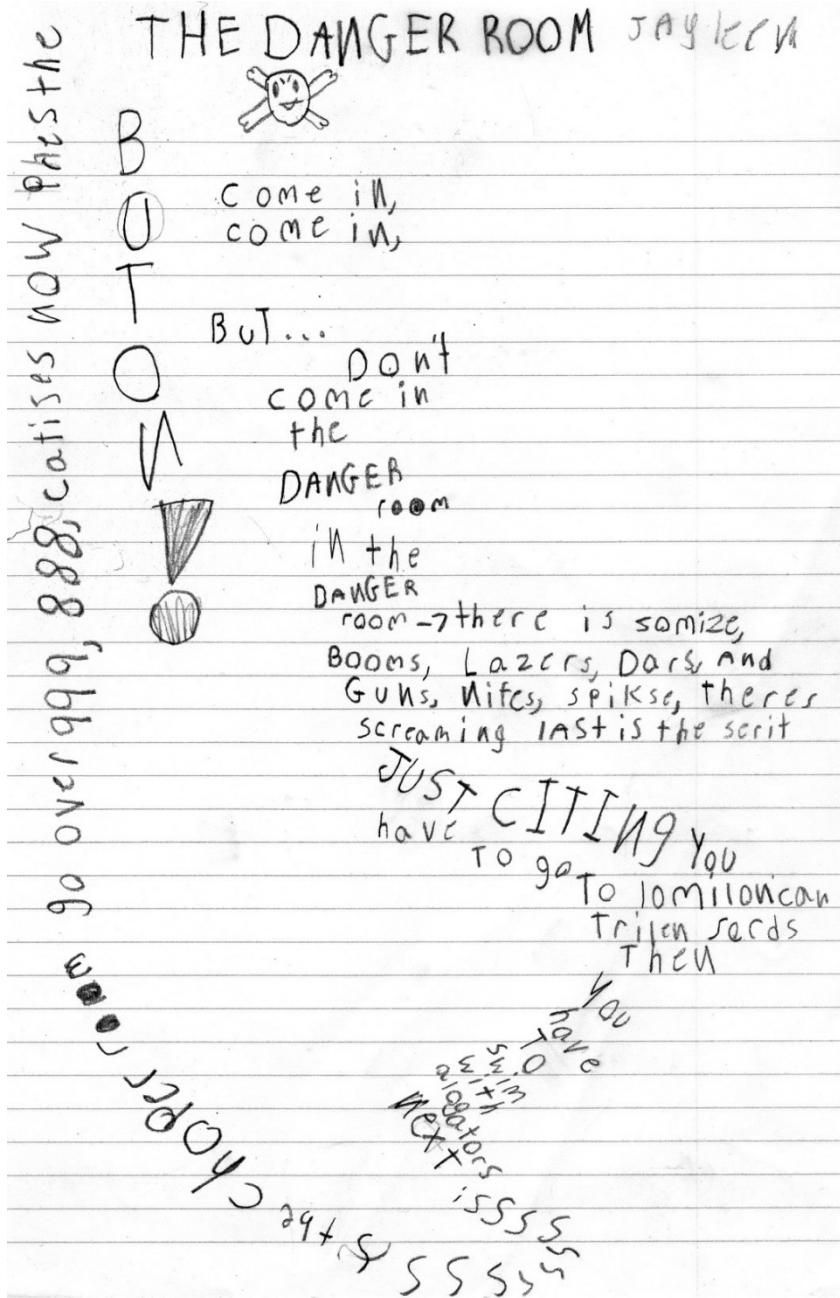 THE DANGER ROOM JAYleen
come in,
come in,
BUT...
DON't
come in
the
DANGER
room
in the
DANGER
room → there is somize,
BOOMS, LAZErs, Dars, And
GUNS, Nifes, spikse, theres
screaming lAst is the serit
JUST CITING you
have
TO go
To 10milonican
Trilen serds
Then
you
have
TO
swim
with
alogators
NEXT
isssssssssss the choper room go over 999, 888, catises now Phes the
BUTON!